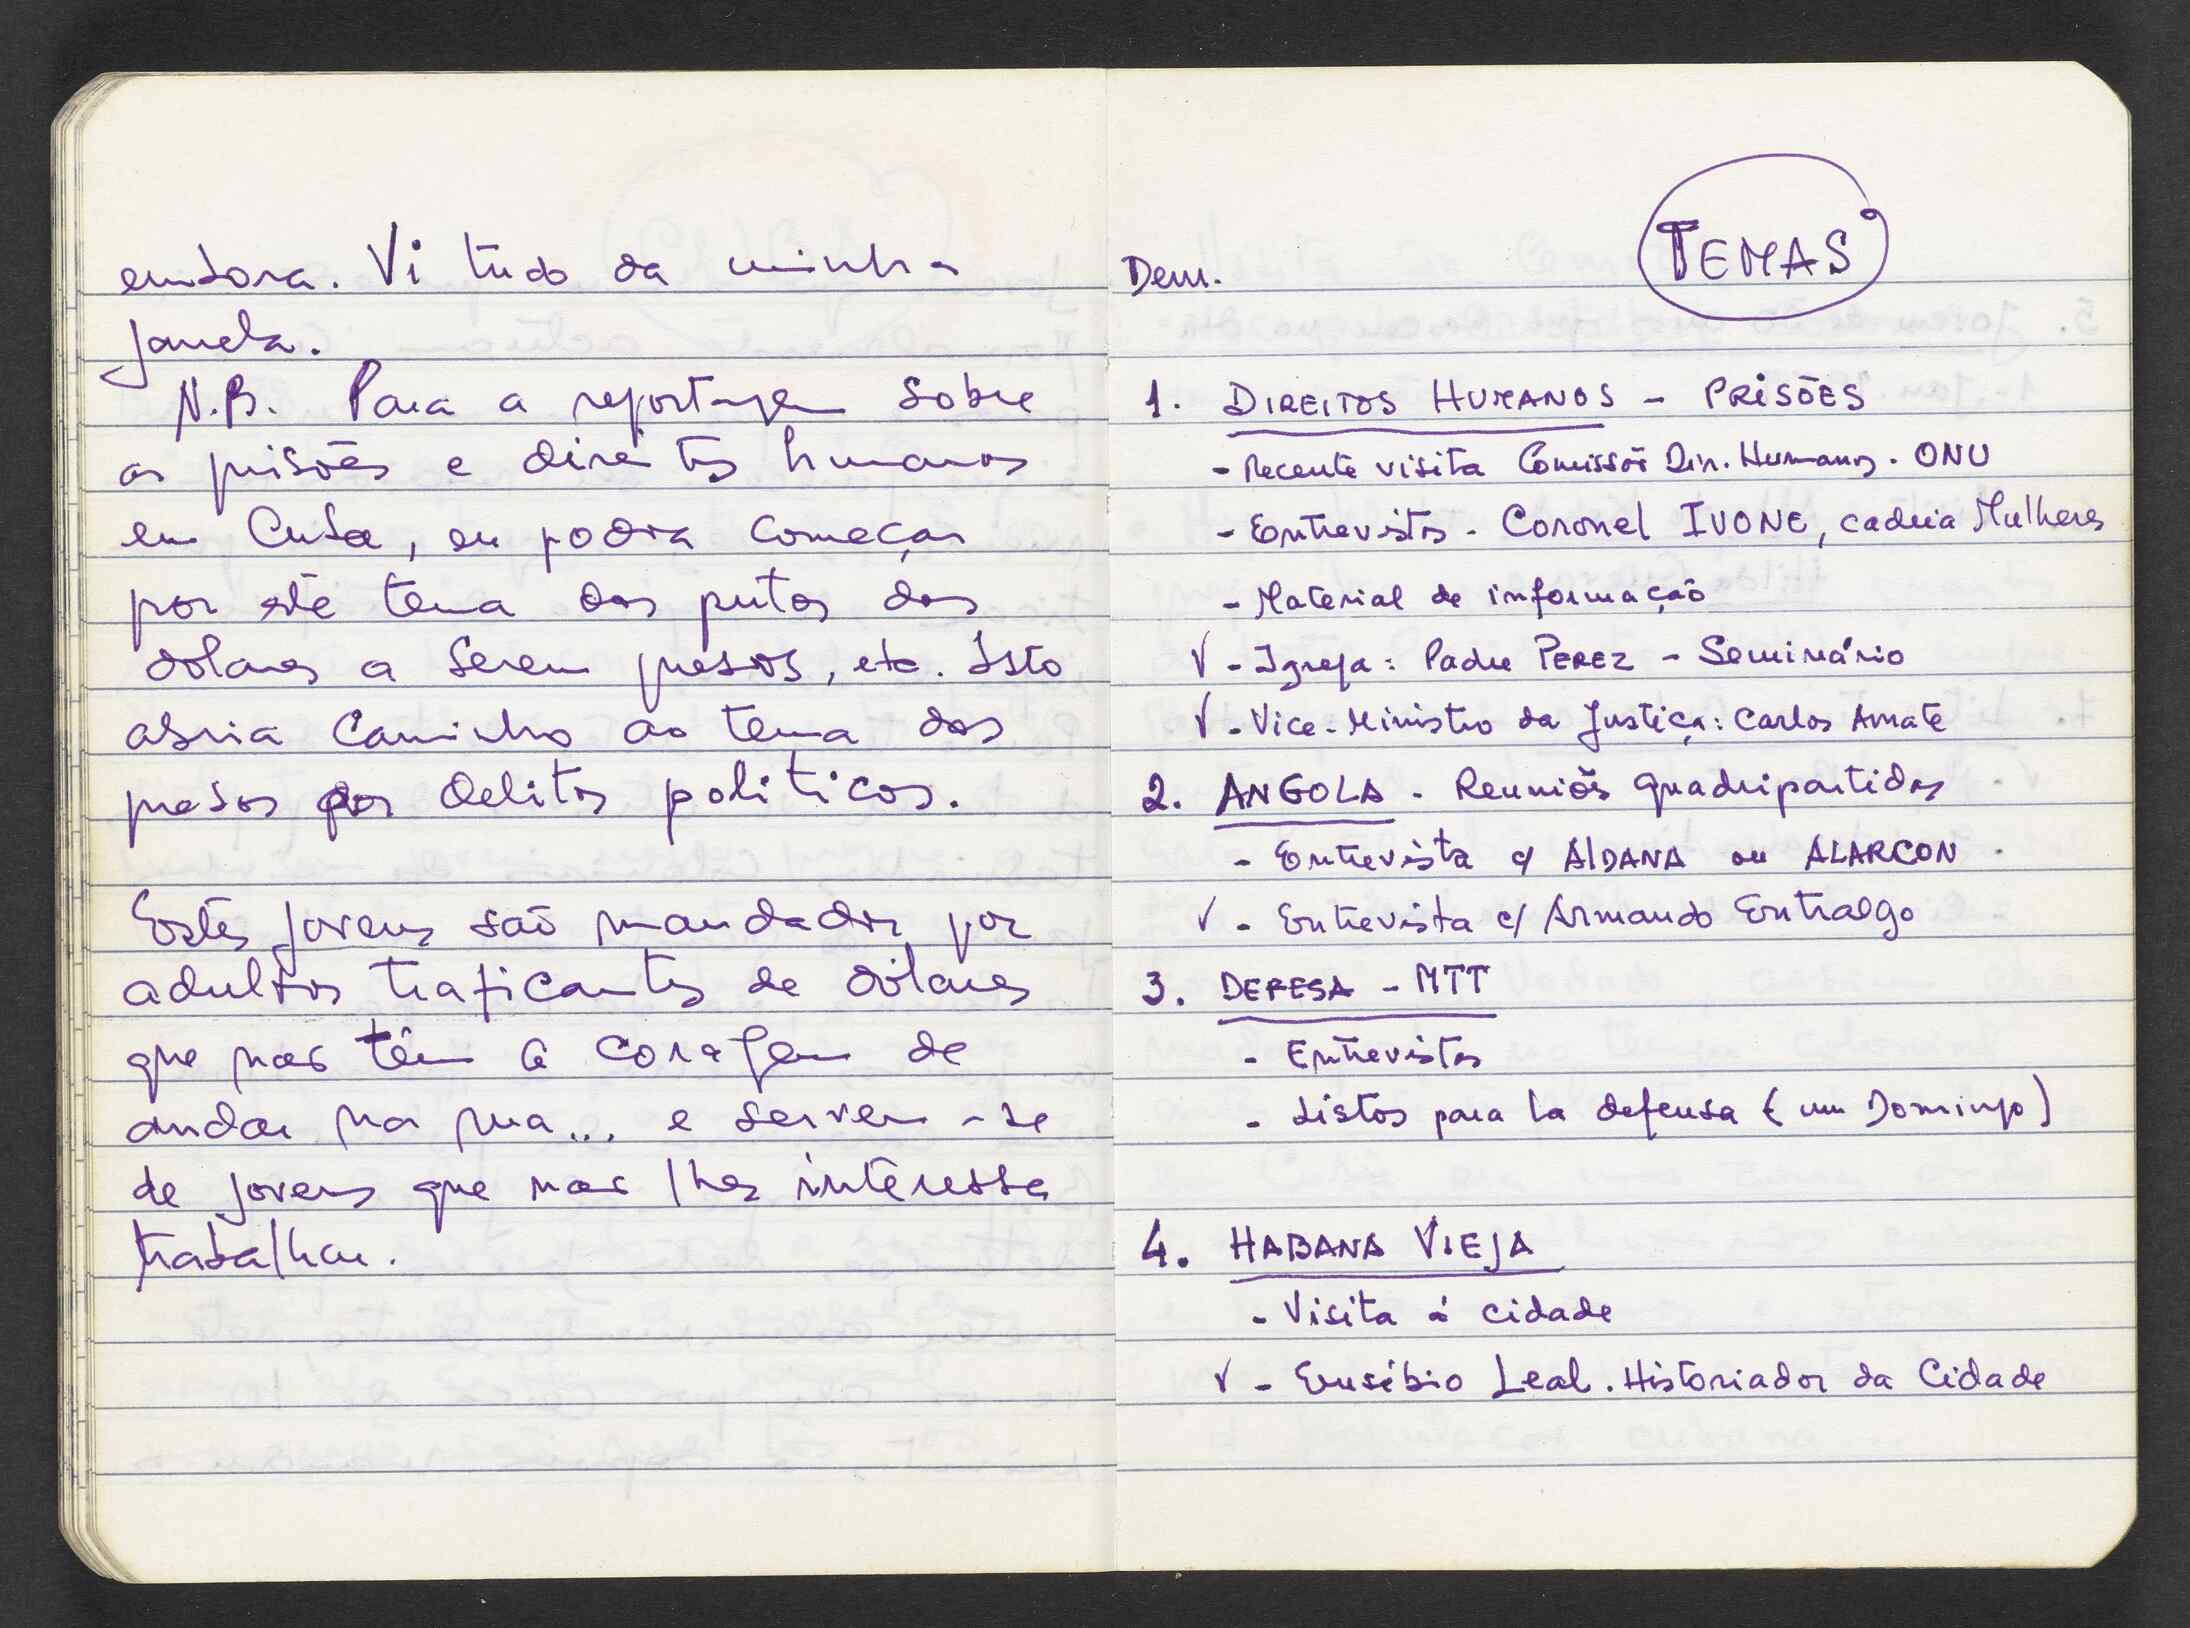 embora. Vi tudo da minha
janela.
N.B. Para a reportagem sobre
as prisões e direitos humanos
em Cuba, eu podia começar
por este tema dos putos dos
dólares a serem presos, etc. Isto
abria caminho ao tema dos
presos por delitos políticos.
Estes jovens são mandados por
adultos traficantes de dólares
que não têm a coragem de
andar na rua... e servem-se
de jovens que não lhes interessa
trabalhar.
Dem.
TEMAS
1. DIREITOS HUMANOS - PRISÕES
- Recente visita Comissão Dir. Humanos. ONU
- Entrevistas. Coronel IVONE, cadeia Mulheres
- Material de informação
V - Igreja: Padre PEREZ - Seminário
V - Vice-Ministro da Justiça: Carlos Amate
2. ANGOLA - Reuniões quadripartidas
- Entrevista c/ ALDANA ou ALARCON
V - Entrevista c/ Armando Entralgo
3. DEFESA - MTT
- Entrevistas
- Listos para la defensa (um Domingo)
4. HABANA VIEJA
- Visita á cidade
V - Eusébio Leal. Historiador da Cidade